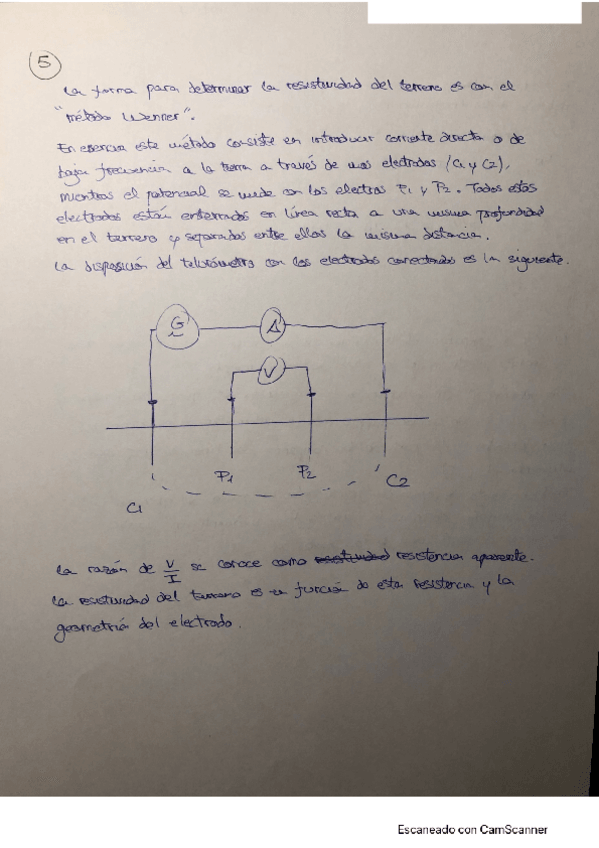 5
La forma para determinar la resistividad del terreno es con el
"método Wenner".
En esencia este método consiste en introducir corriente directa o de
baja frecuencia a la tierra a través de unos electrodos (C1 y C2),
mientras el potencial se mide con los electros P1 y P2. Todos estos
electrodos están enterrados en línea recta a una misma profundidad
en el terreno y separados entre ellos la misma distancia.
La disposición del telurómetro con los electrodos conectados es la siguiente.
G A
V
P1 P2 C2
C1
La razón de V/I se conoce como resistencia aparente.
La resistividad del terreno es en función de esta resistencia y la
geometría del electrodo.
Escaneado con CamScanner